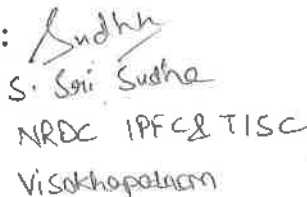 : Sudha
S. Sri Sudha
NRDC IPFC & TISC
Visakhapatnam